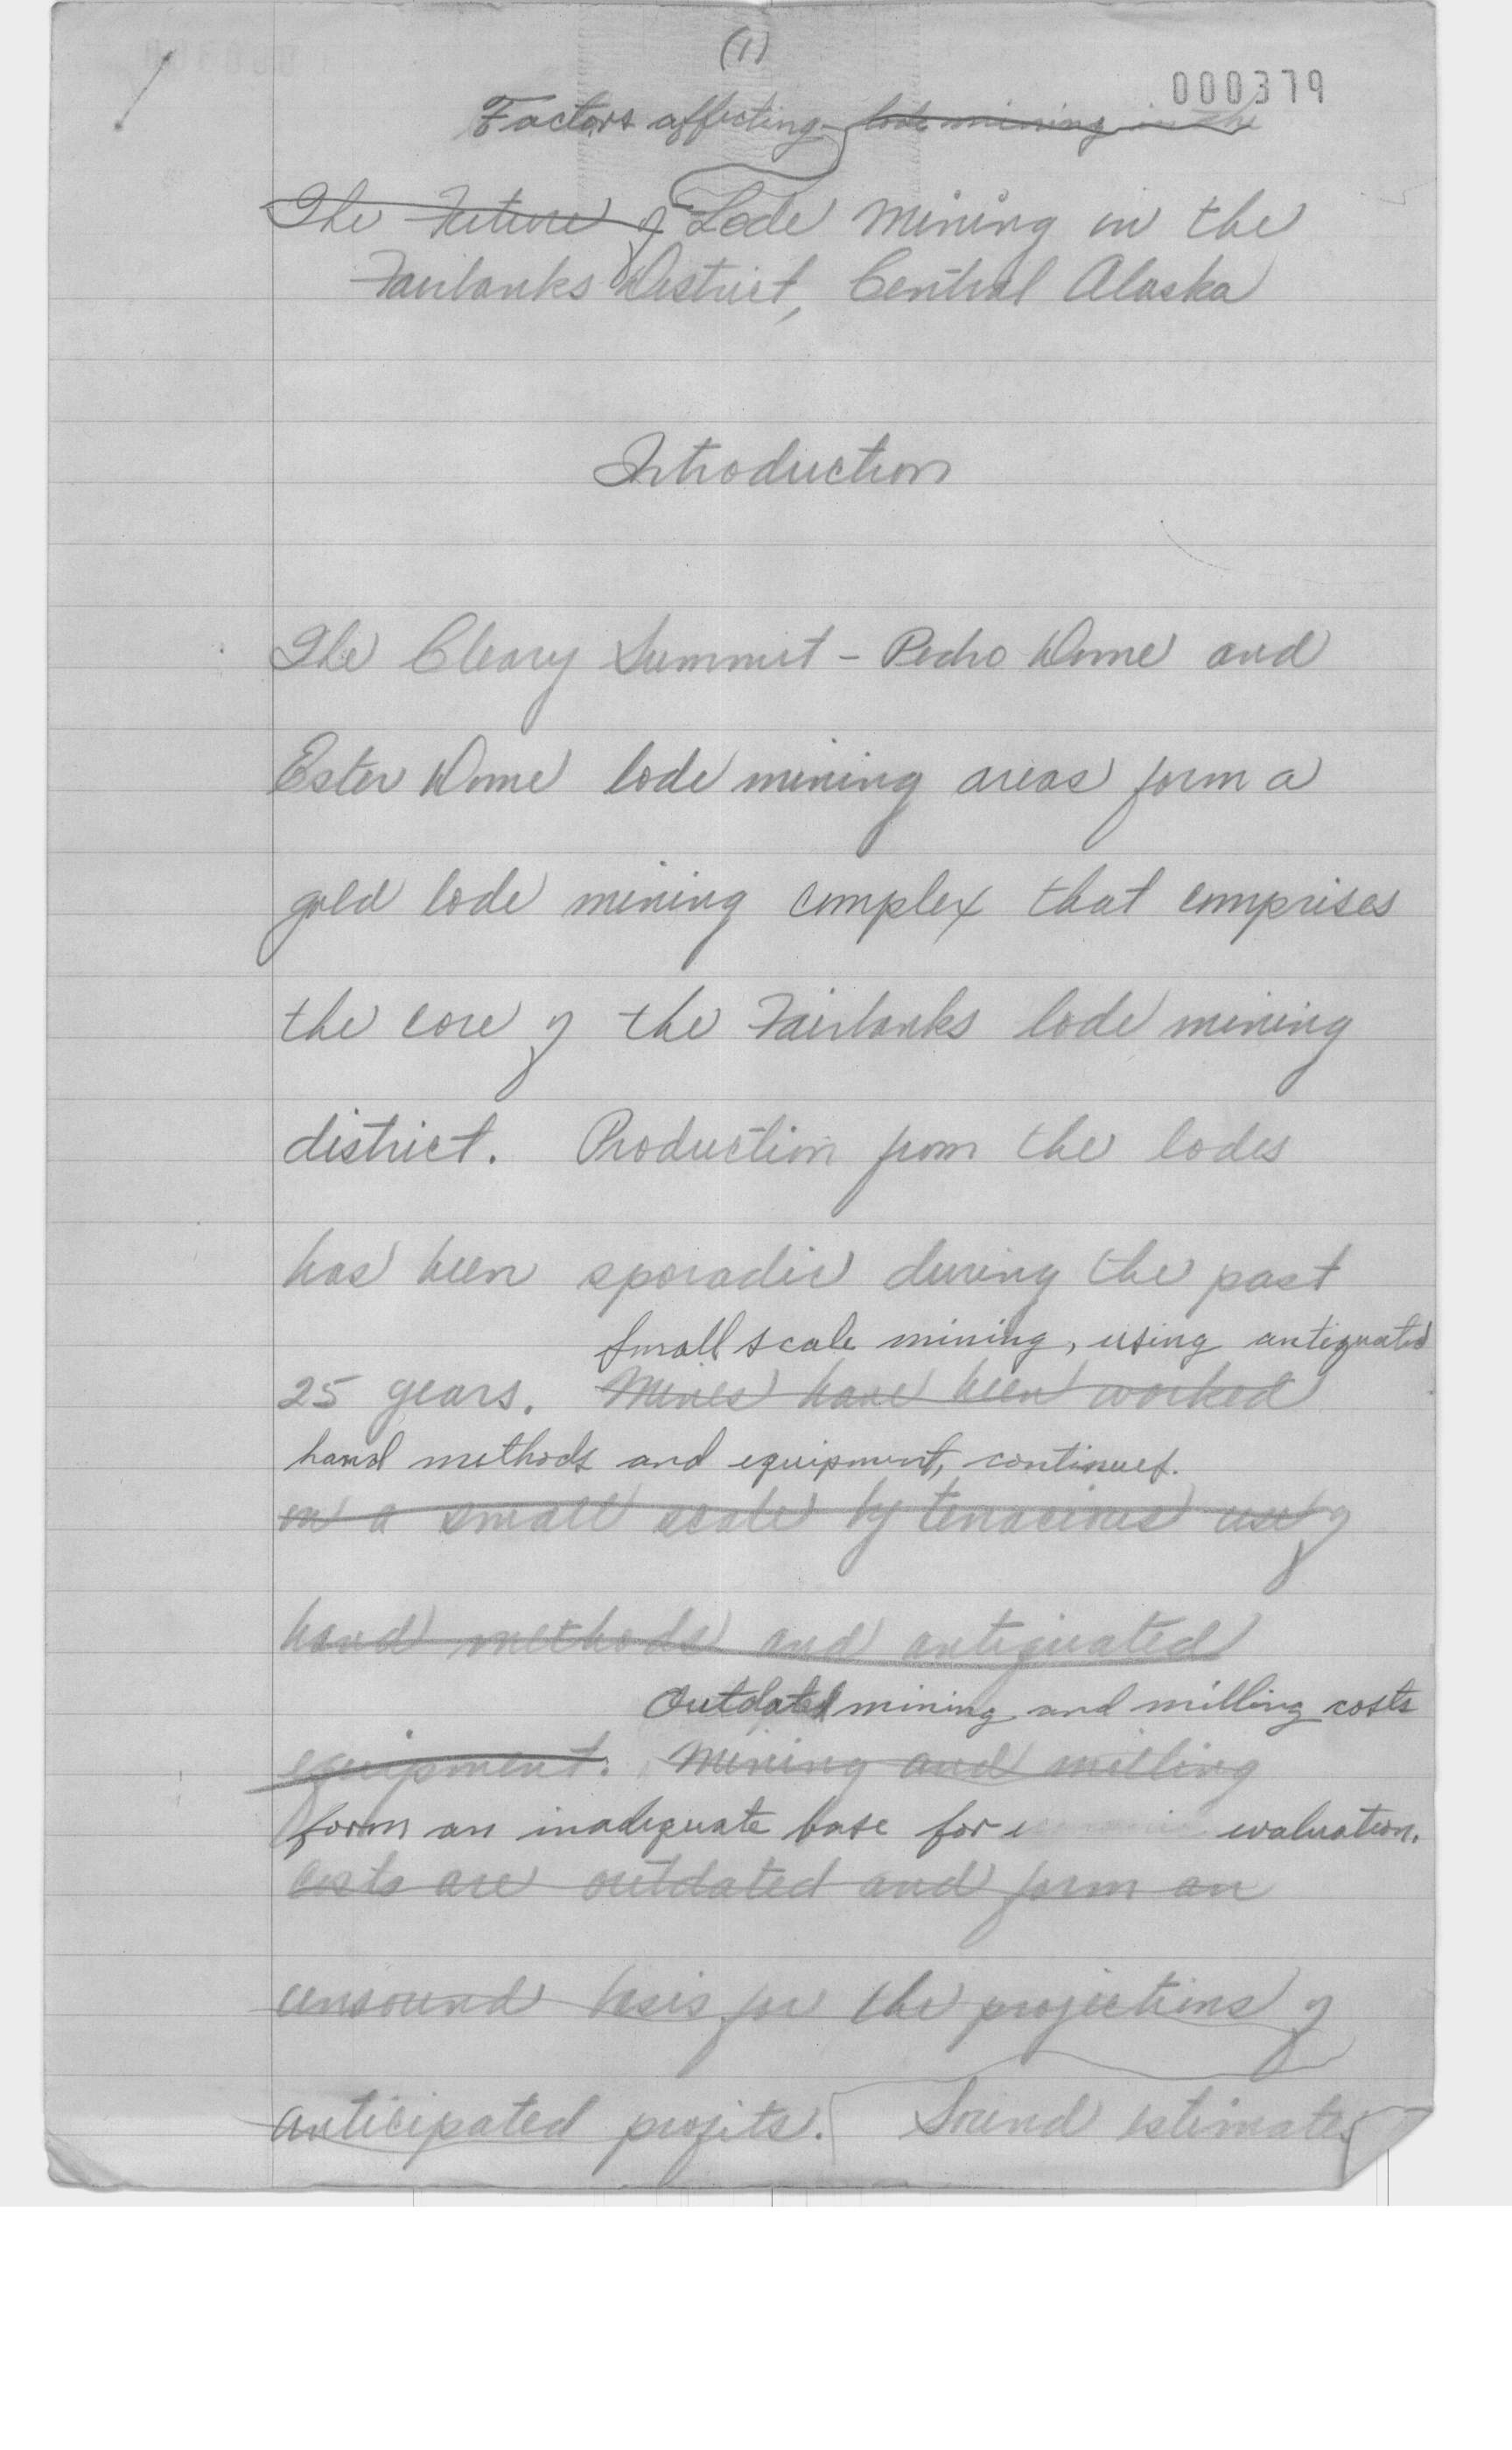 (1)
000379
Factors affecting lode mining in the
The Future of Lode Mining in the
Fairbanks District, Central Alaska
Introduction
The Cleary Summit - Pedro Dome and
Ester Dome lode mining areas form a
gold lode mining complex that comprises
the core of the Fairbanks lode mining
district. Production from the lodes
has been sporadic during the past
Small scale mining, using antiquated
25 years. Mines have been worked
hand methods and equipment, continues.
on a small scale by tenacious use of
hand methods and antiquated
Outdated mining and milling costs
equipment. Mining and milling
form an inadequate base for evaluation.
costs are outdated and form an
unsound basis for the projections of
anticipated profits. Sound estimates